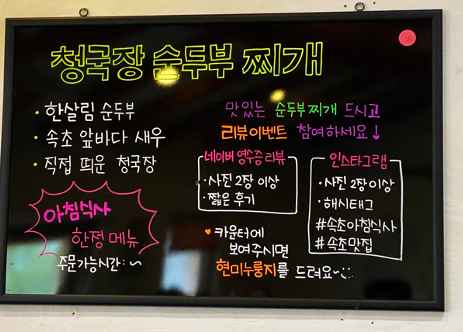 청국장 순두부 찌개
· 한살림 순두부
· 속초 앞바다 새우
· 직접 띄운 청국장
아침식사
한정 메뉴
주문가능시간 : ~
맛있는 순두부찌개 드시고
리뷰이벤트 참여하세요↓
네이버 영수증 리뷰
· 사진 2장 이상
· 짧은 후기
인스타그램
· 사진 2장이상
· 해시태그
#속초아침식사
#속초맛집
♥ 카운터에
보여주시면
현미누룽지를 드려요~